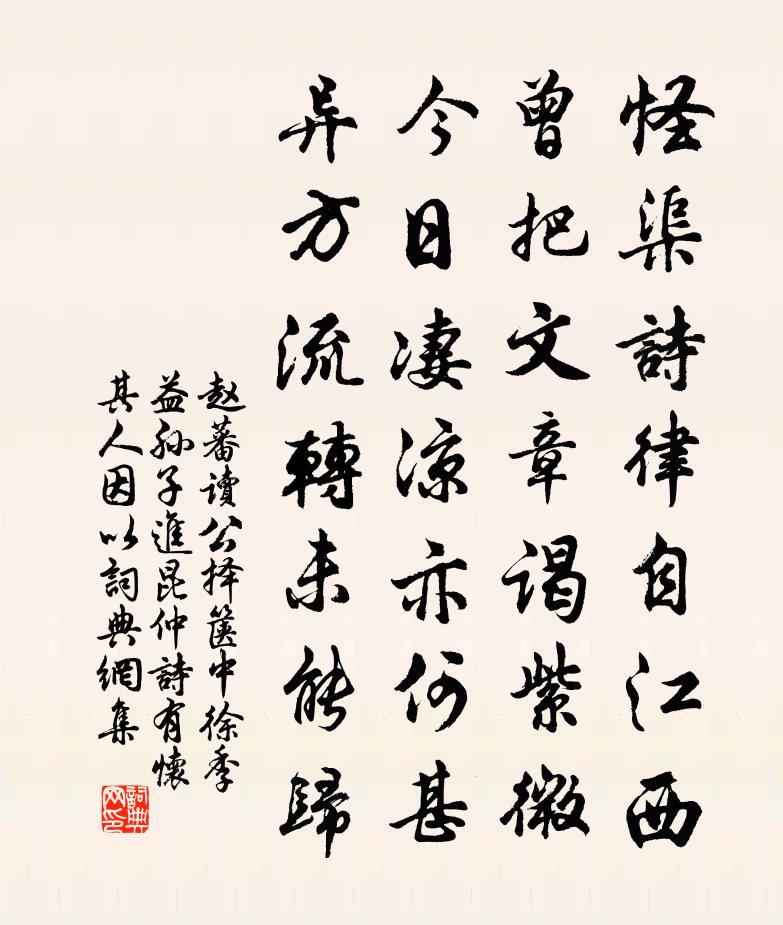 怪渠詩律自江西
曾把文章謁紫微
今日凄凉亦何甚
异方流轉未能歸
赵蕃讀公择篋中徐季
益孙子進昆仲詩有懷
其人因以詞典網集
詞典
网印